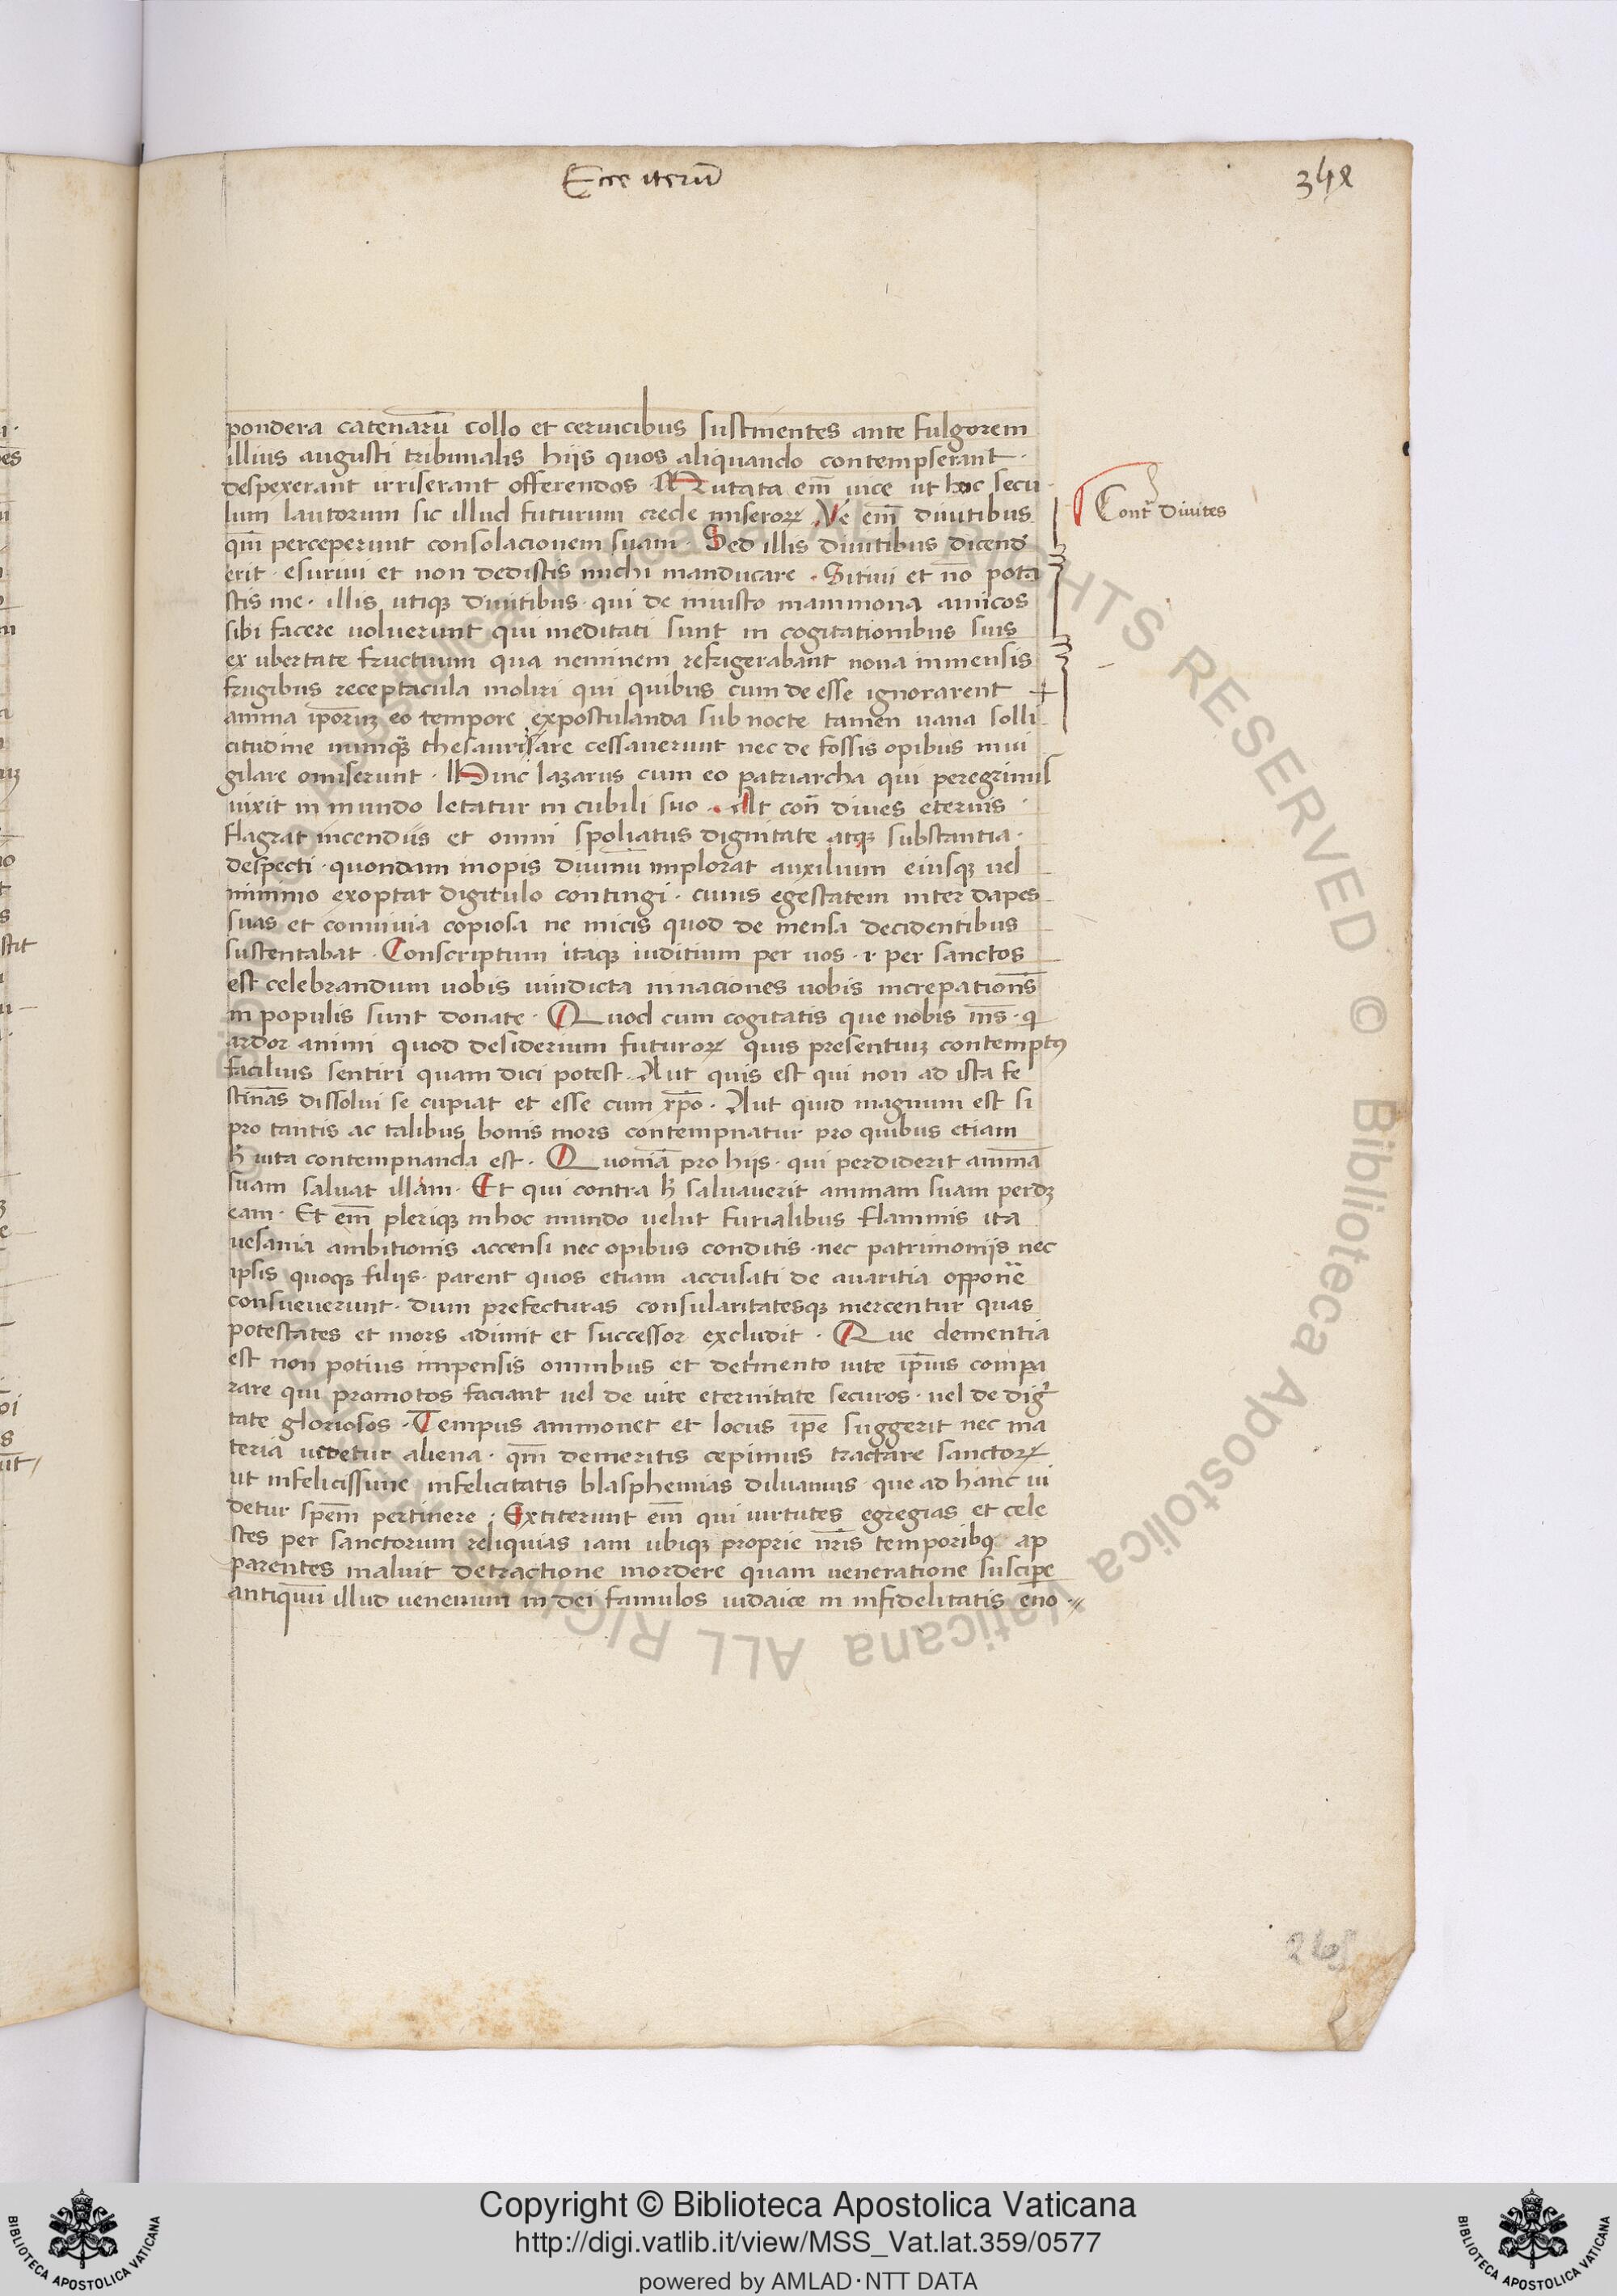 Ecce iterū
348
pondera catenarū collo et cervicibus sustinentes ante fulgorem
illius augusti tribunalis hijs quos aliquando contempserant ·
despexerant irriserant offerendos · Mutata em̄ vice ut hoc secu
lum lautorum sic illud futurum crede miseroꝝ Ve em̄ divitibus
Contr̄ divites
qm̄ perceperunt consolacionem suam · Sed illis divitibus dicend̄
erit · esurivi et non dedistis michi manducare · Sitivi et nō pota
stis me · illis utiqꝫ divitibus · qui de iniusto mammona amicos
sibi facere noluerunt qui meditati sunt in cogitationibus suis
ex ubertate fructuum qua neminem refrigerabant nova inmensis
frugibus receptacula moliri qui quibus cum de esse ignorarent
anima ip̄oꝝ eo tempore expostulanda sub nocte tamen vana solli
citudine nunqꝫ thesaurisare cessaverunt nec de fossis opibus invi
gilare omiserunt · Hinc lazarus cum eo patriarcha qui peregrinus
vixit in mundo letatur in cubili suo · At con̄ dives eternis ·
flagrat incendiis et omni spoliatus dignitate atqꝫ substantia ·
despecti · quondam inopis divinū implorat auxilium eiusqꝫ vel
minimo exoptat digitulo contingi · cuius egestatem inter dapes
suas et convivia copiosa ne micis quod de mensa decidentibus
sustentabat · Conscriptum itaqꝫ iuditium per vos · r · per sanctos
est celebrandum vobis vindicta in naciones vobis increpation̄s
in populis sunt donate · Quod cum cogitatis que nobis īns · q̄
ardor animi quod desiderium futuroꝝ quis presentiuꝫ contemptꝰ
facilius sentiri quam dici potest · Aut quis est qui non ad ista fe
stināns dissolvi se cupiat et esse cum xp̄o · Aut quid magnum est si
pro tantis ac talibus bonis mors contempnatur pro quibus etiam
h̄ vita contempnanda est · Quoniā pro hijs · qui perdiderit animā
suam salvat illam · Et qui contra h̄ salvaverit animam suam perdꝫ
eam · Et em̄ pleriqꝫ in hoc mundo velut furialibus flammis ita
vesania ambitionis accensi nec opibus conditis · nec patrimonijs nec
ipsis quoqꝫ filijs · parent quos etiam accusati de avaritia oppone
consueverunt · dum prefecturas consularitatesqꝫ mercentur quas
potestates et mors adimit et successor excludit · Que dementia
est non potius impensis omnibus et detrimento vite ip̄ius compa
rare qui promotos faciant vel de vite eternitate securos · vel de dig
tate gloriosos · Tempus ammonet et locus ip̄e suggerit nec ma
teria videtur aliena · qm̄ de meritis cepimus tractare sanctoꝝ
ut infelicissime infelicitatis blasphemias diluamus · que ad hanc vi
detur spem̄ pertinere · Extiterunt em̄ qui virtutes egregias et cele
stes per sanctorum reliquias iam ubiqꝫ proprie nr̄is temporibꝰ ap
parentes maluit detractione mordere quam veneratione suscipe
antiquum illud venenum in dei famulos iudaice in infidelitatis evo
265
BIBLIOTECA APOSTOLICA VATICANA
Copyright © Biblioteca Apostolica Vaticana
http://digi.vatlib.it/view/MSS_Vat.lat.359/0577
powered by AMLAD·NTT DATA
BIBLIOTECA APOSTOLICA VATICANA